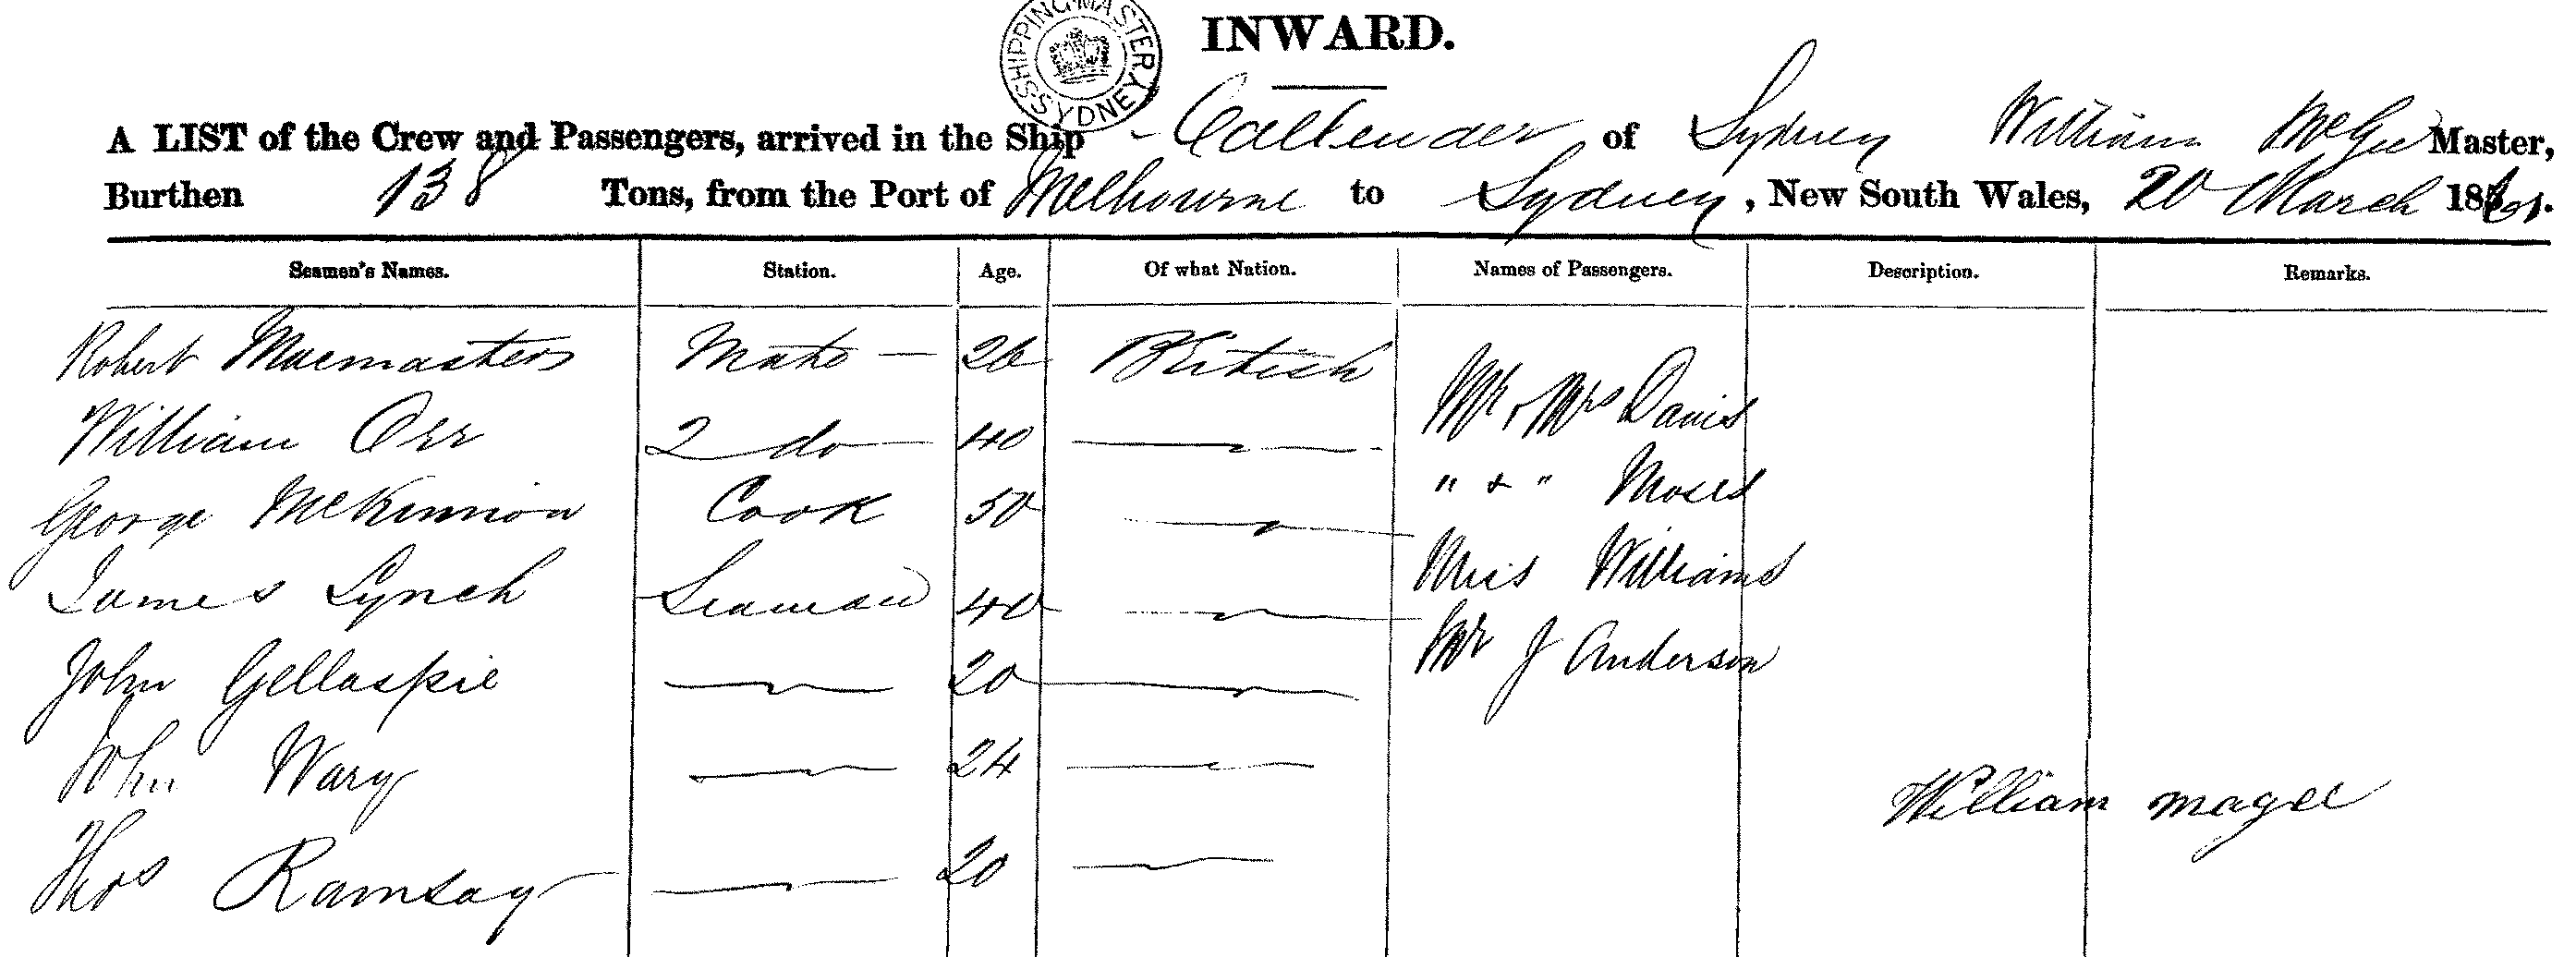 SHIPPING MASTER SYDNEY
INWARD.
A LIST of the Crew and Passengers, arrived in the Ship Callender of Sydney William McGee Master,
Burthen 138 Tons, from the Port of Melbourne to Sydney, New South Wales, 20 March 1861.
Seamen's Names. Station. Age. Of what Nation. Names of Passengers. Description. Remarks.
Robert Macmasters Mate — 26 British Mr & Mrs Davis
William Orr 2 do 40
" & " Moses
George McKinnion Cook 50
Miss Williams
James Lynch Seaman 40
Mr J Anderson
John Gellaspie 20
John Wary 24
William magee
Thos Ramsay 20